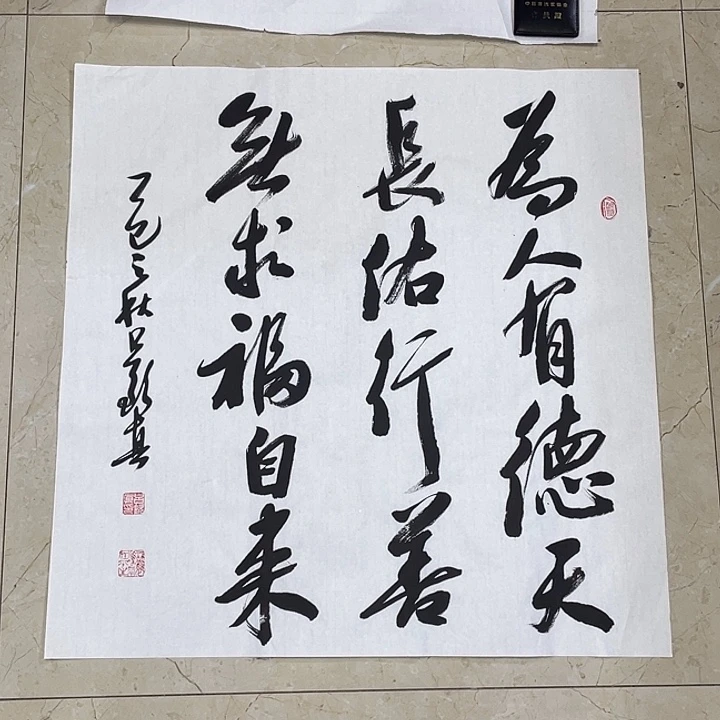 為人有德天
長佑行善
無求福自来
乙巳之秋